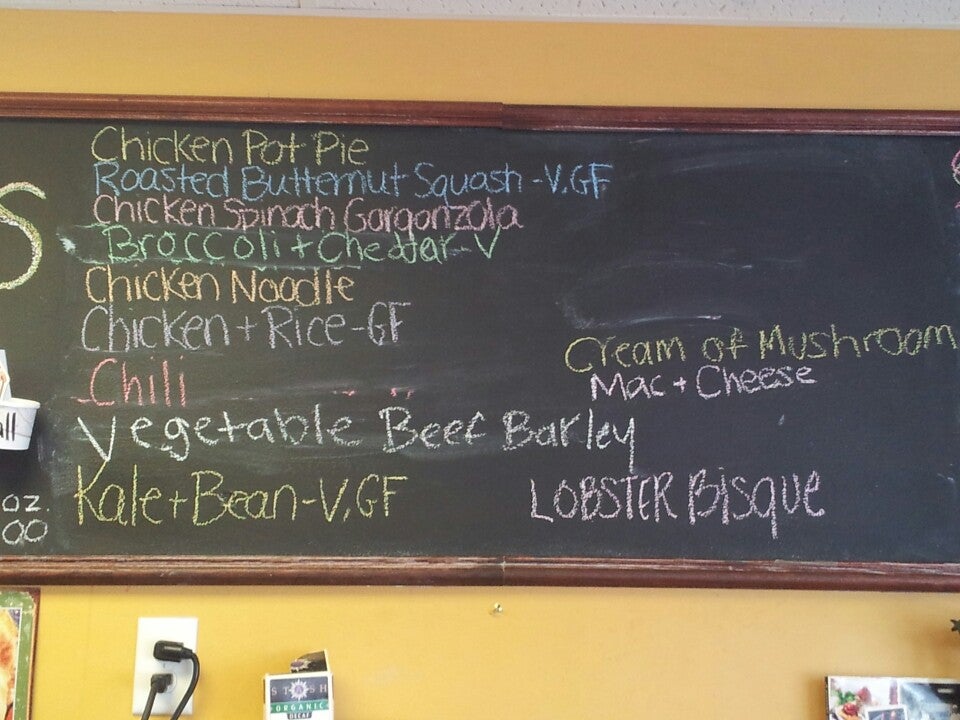 S
Chicken Pot Pie
Roasted Butternut Squash -V.GF
Chicken Spinach Gorgonzola
Broccoli + Cheddar-V
Chicken Noodle
Chicken + Rice-GF
Chili
Vegetable Beef Barley
Kale+Bean-V,GF
Cream of Mushroom
Mac + Cheese
LOBSTER Bisque
all
oz.
00
STASH
ORGANIC
DECAF